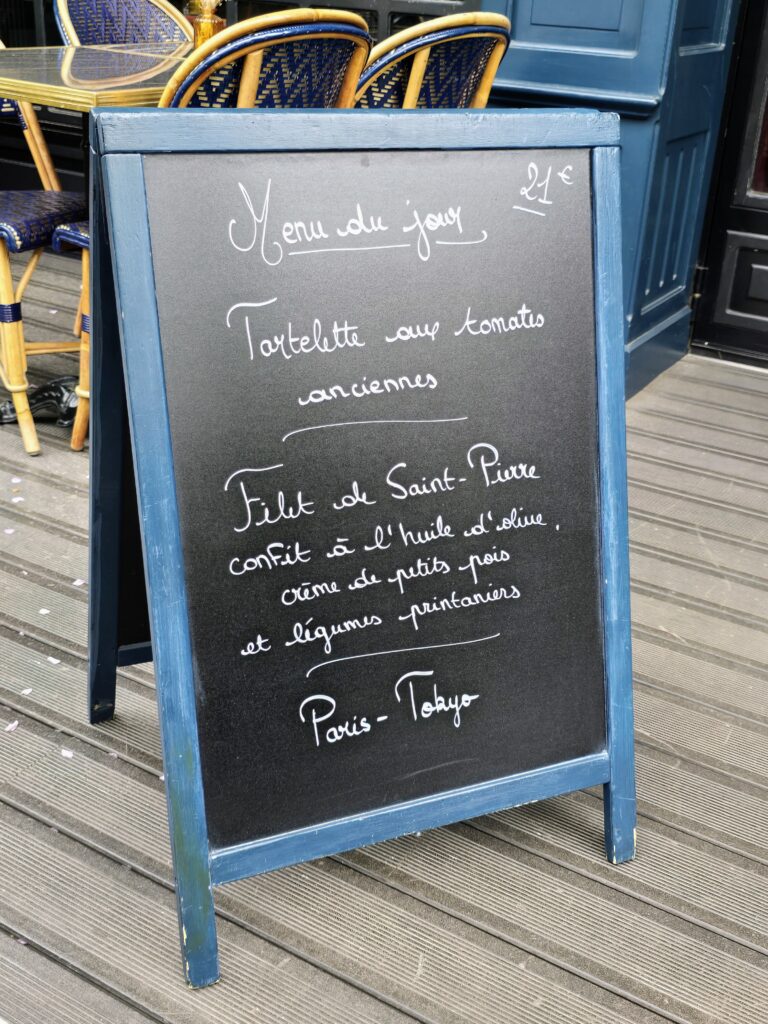 Menu du jour 21€
Tartelette aux tomates
anciennes
Filet de Saint-Pierre
confit à l'huile d'olive,
crème de petits pois
et légumes printaniers
Paris-Tokyo